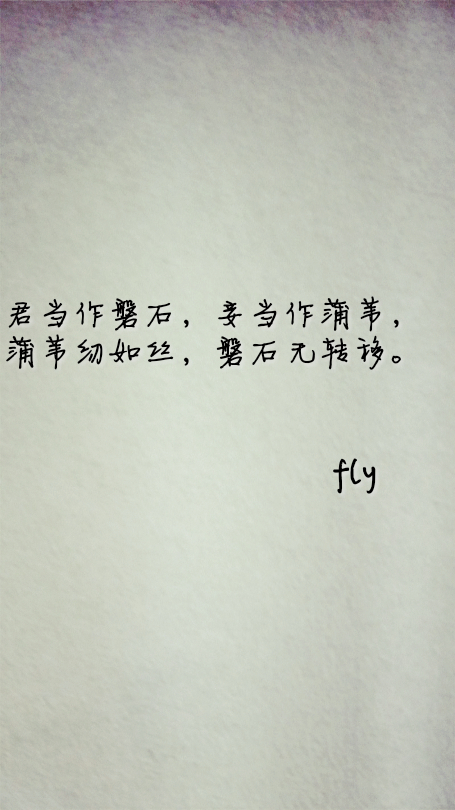 君当作磐石，妾当作蒲苇，
蒲苇纫如丝，磐石无转移。
fly